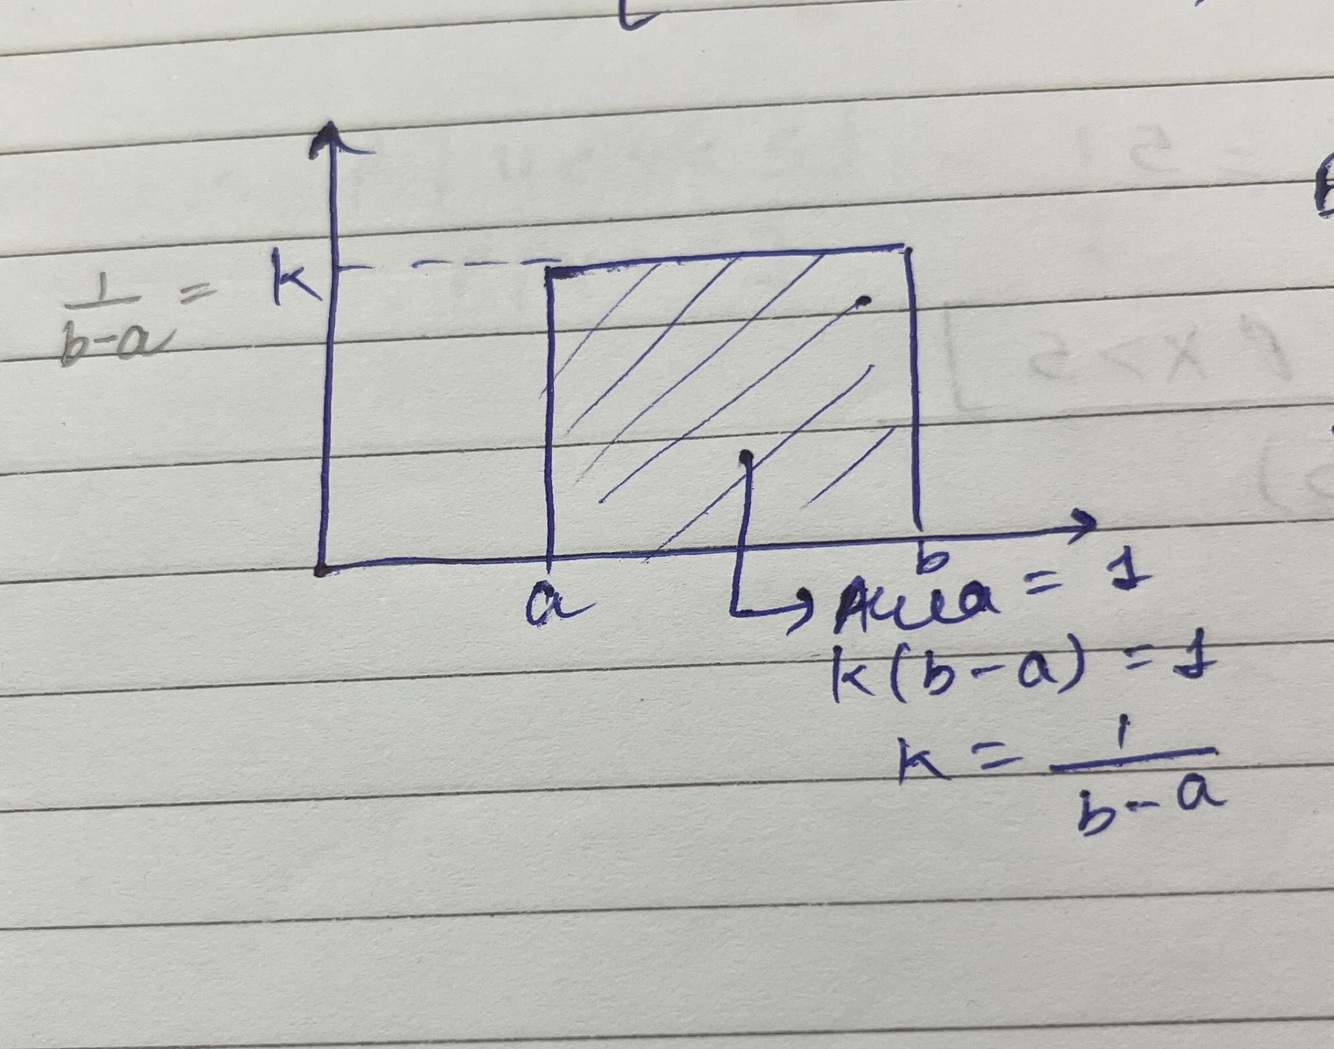 1/(b-a) = k
a
b
Area = 1
k(b-a) = 1
k = 1/(b-a)